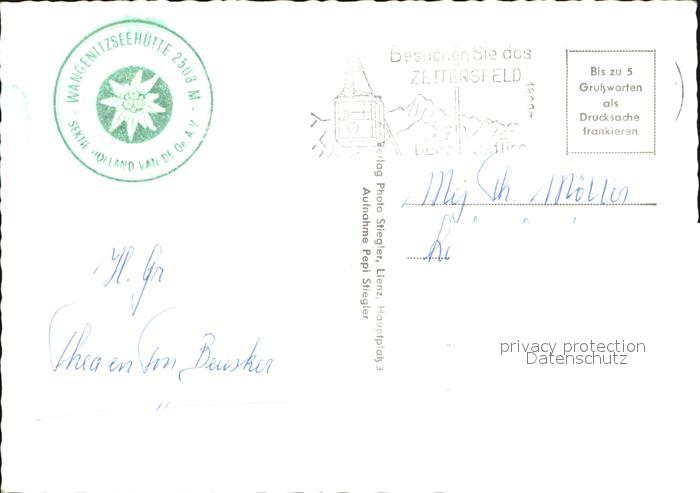 WANGENITZSEEHÜTTE 2508 M
SEKTIE HOLLAND VAN DE Oe.A.V.
Besuchen Sie das
ZETTERSFELD
Bis zu 5
Grußworten
als
Drucksache
frankieren
Verlag Photo Stiegler, Lienz, Hauptplatz 3
Aufnahme Pepi Stiegler
Mej. Th. Möller
H. Gr
Thea en Ton
privacy protection
Datenschutz